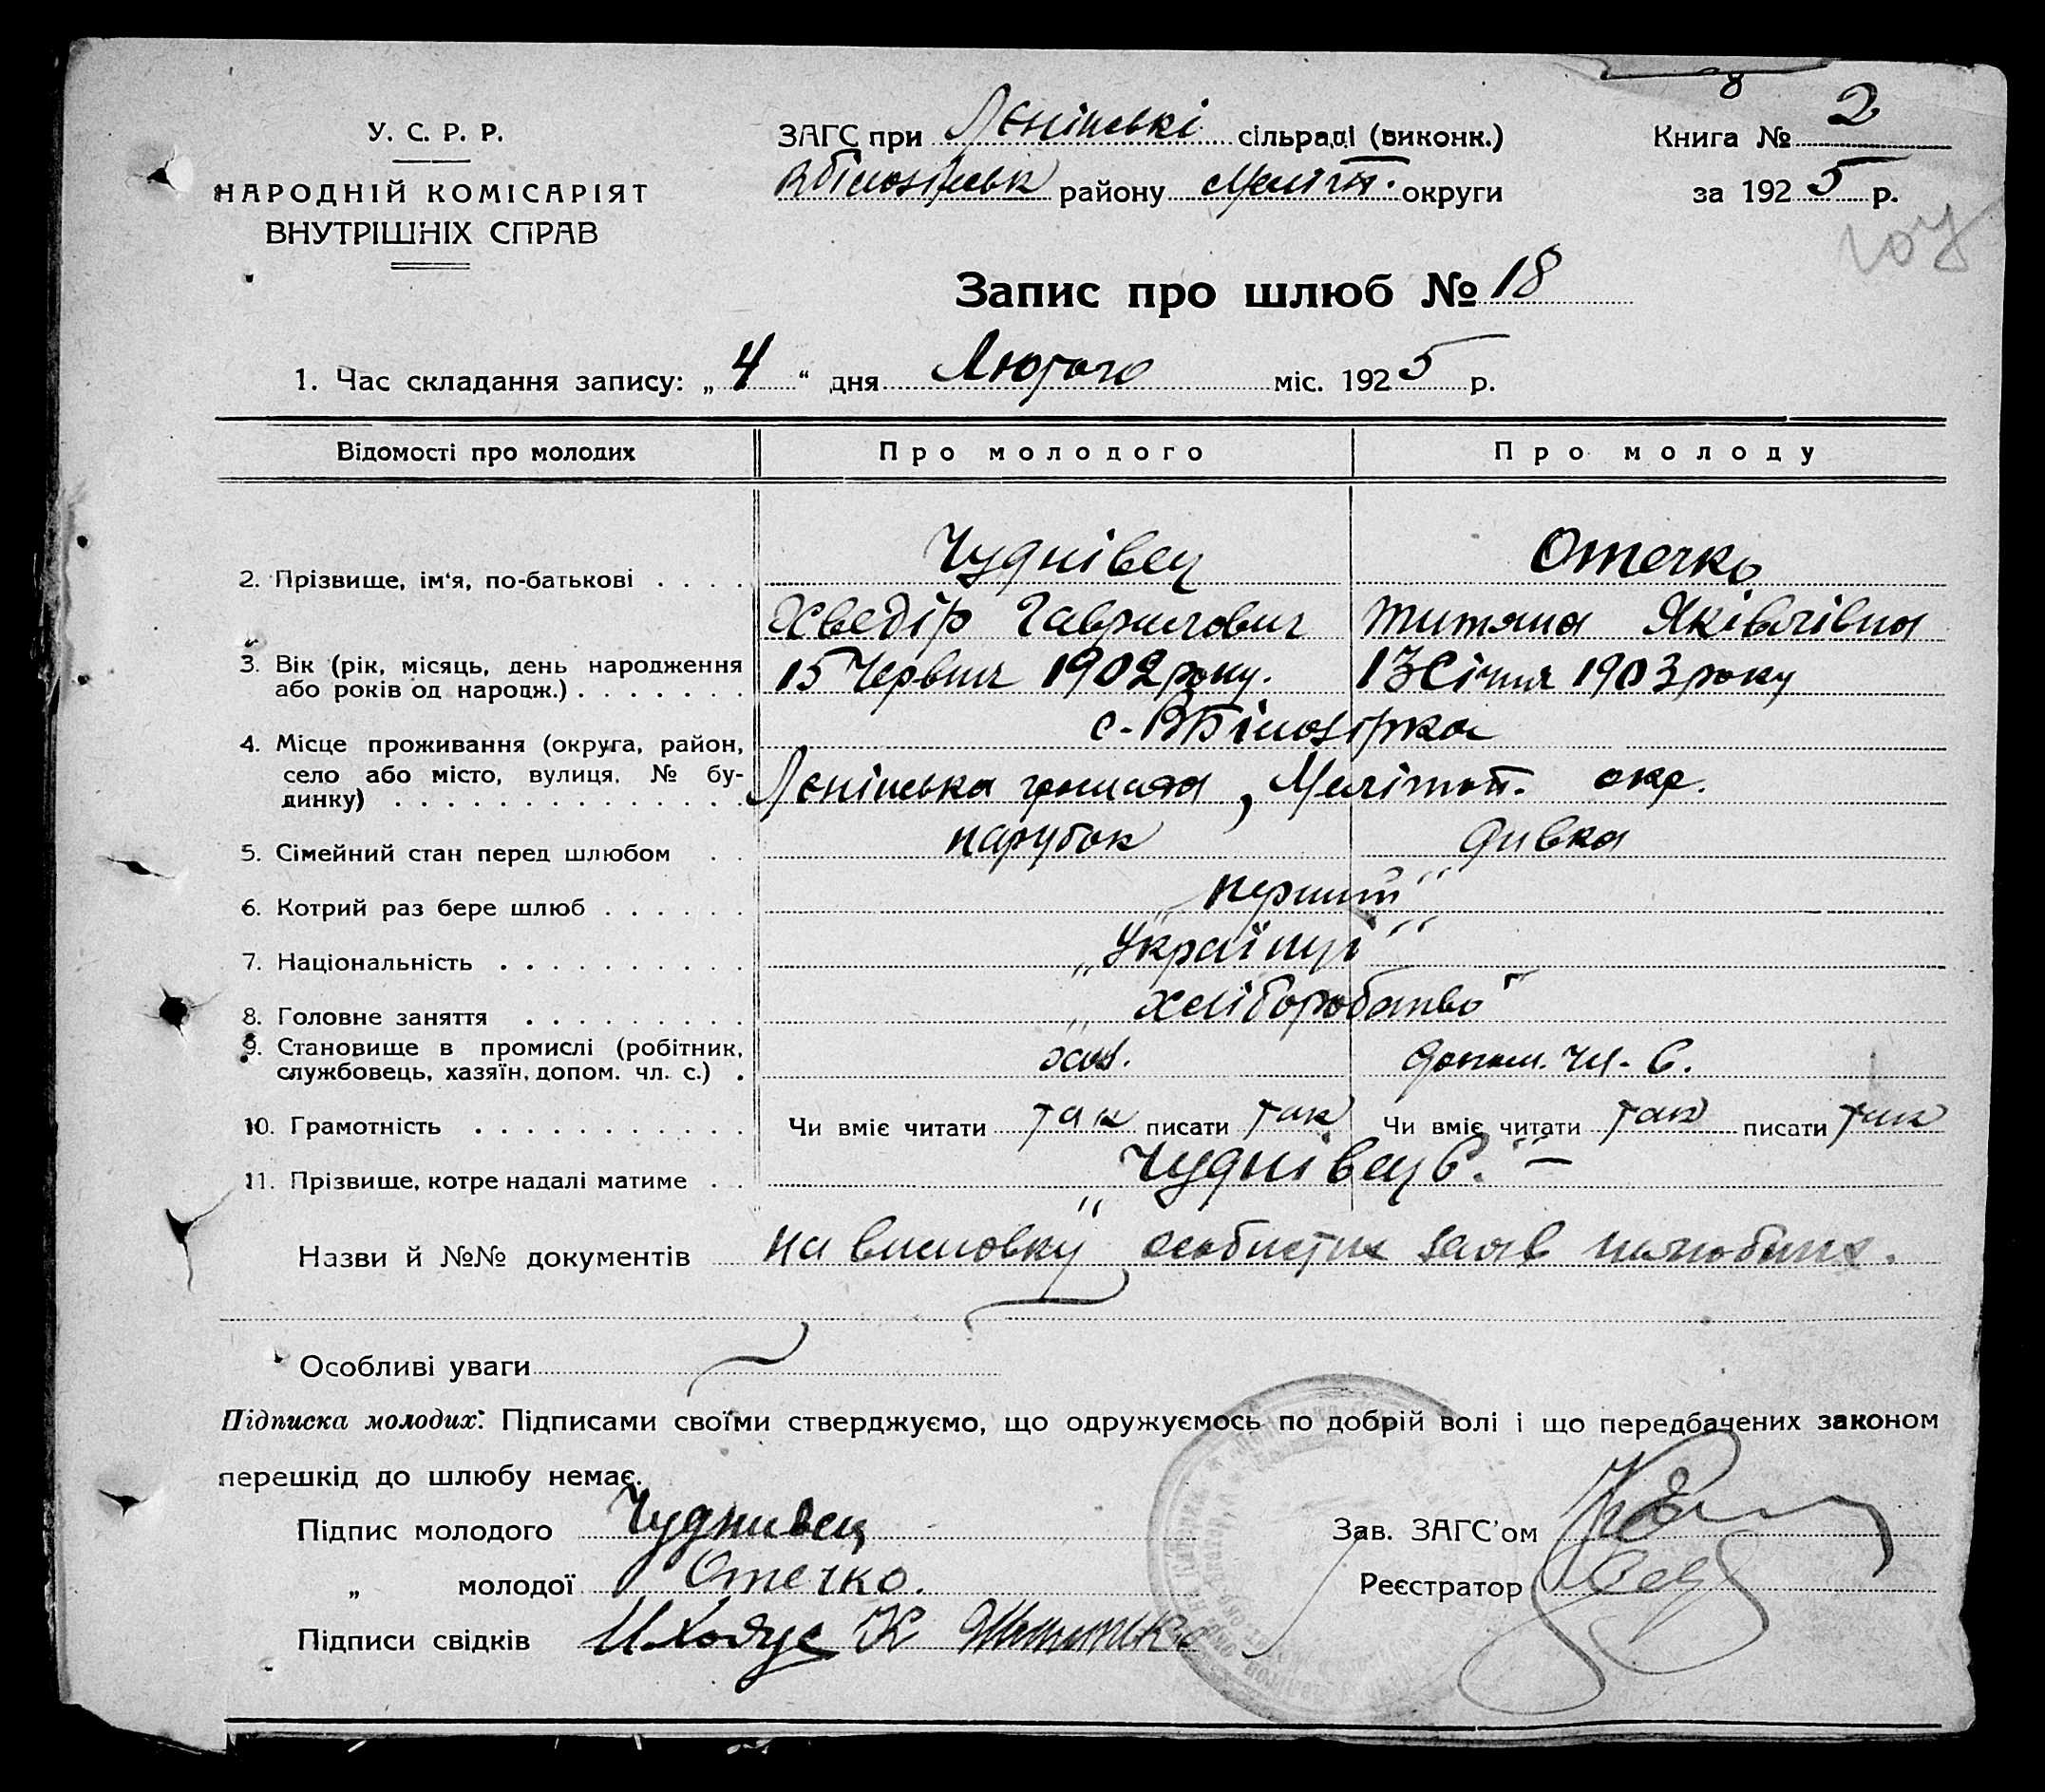 У. С. Р. Р.
НАРОДНІЙ КОМІСАРІЯТ
ВНУТРІШНІХ СПРАВ
ЗАГС при Лєнінські сільраді (виконк.)
ВБілозірськ району Меліт. округи
Книга № 2
за 1925 р.
Запис про шлюб № 18
1. Час складання запису: „4“ дня Лютого міс. 1925 р.
Відомості про молодих Про молодого Про молоду
2. Прізвище, ім'я, по-батькові . . . . Чуднівец Отечко
Хведір Гаврилович Титяна Яківлівна
3. Вік (рік, місяць, день народження
або років од народж.) . . . . . . . 15 Червня 1902 року. 13 Січня 1903 року
4. Місце проживання (округа, район,
село або місто, вулиця, № бу-
динку) . . . . . . . . . . . . . .
с. ВБілозірка
Лєнінська громада, Мелітоп. окр.
5. Сімейний стан перед шлюбом . . парубок дивка
6. Котрий раз бере шлюб . . . . . . „перший“
7. Національність . . . . . . . . . . „Українці“
8. Головне заняття . . . . . . . . . „хліборобство“
9. Становище в промислі (робітник,
службовець, хазяїн, допом. чл. с.) . хаз. допом. чл. С.
10. Грамотність . . . . . . . . . . . Чи вміє читати так писати так Чи вміє читати так писати так
11. Прізвище, котре надалі матиме . . „Чуднівець“
Назви й №№ документів на висновку особистих заяв шлюбних.
Особливі уваги
Підписка молодих: Підписами своїми стверджуємо, що одружуємось по добрій волі і що передбачених законом
перешкід до шлюбу немає.
Підпис молодого Чуднивец
Зав. ЗАГС'ом
„ молодої Отечко.
Реєстратор
Підписи свідків